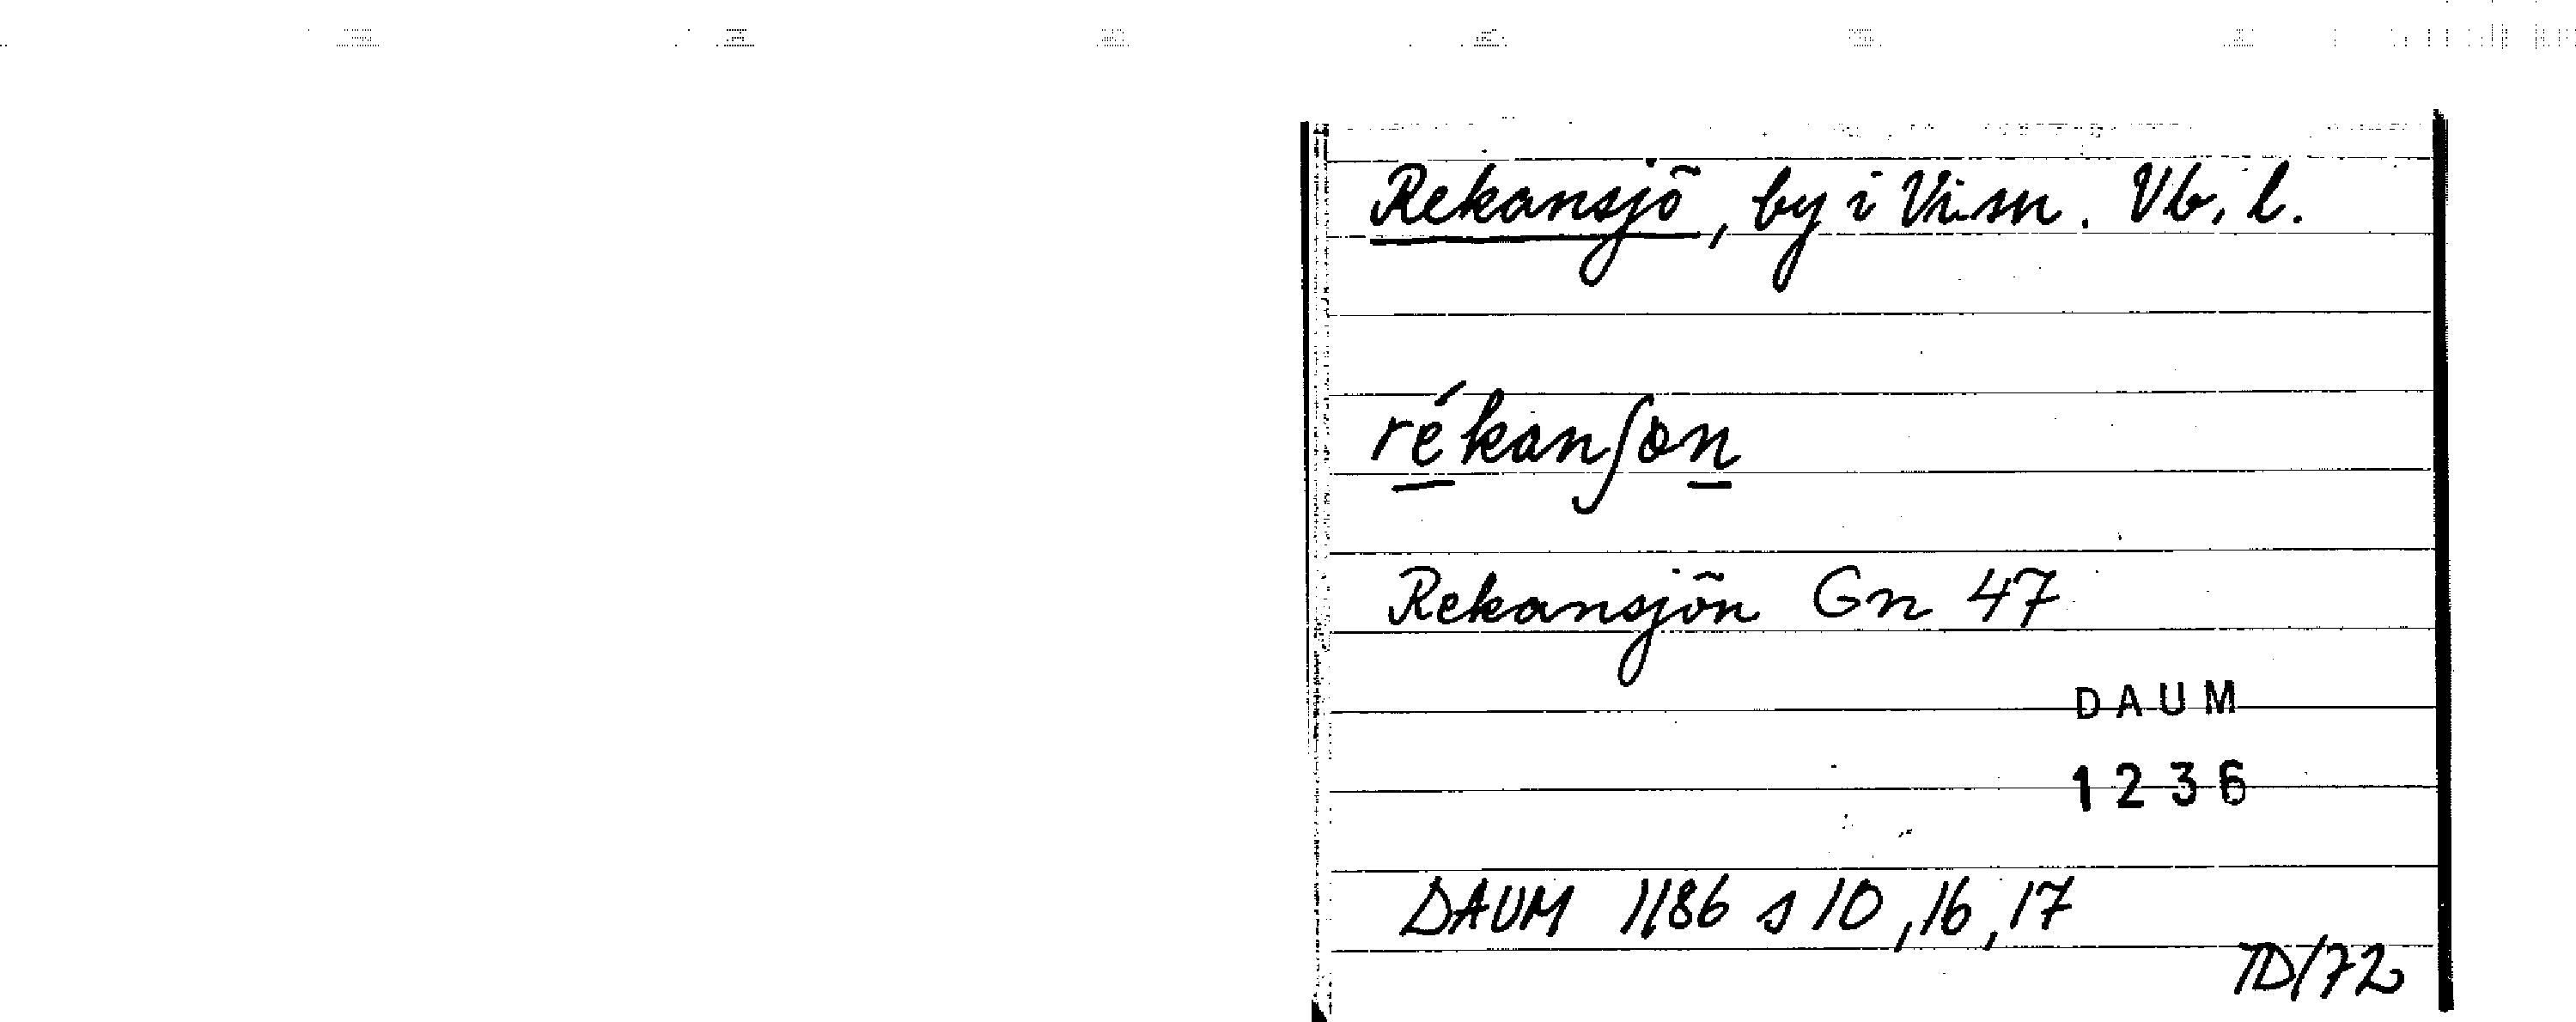 Rekansjö, by i Vi. sn. Vb. l.
rékanʃon
Rekansjön Gn 47
DAUM
1236
DAUM 1186 s 10, 16, 17
TD/72